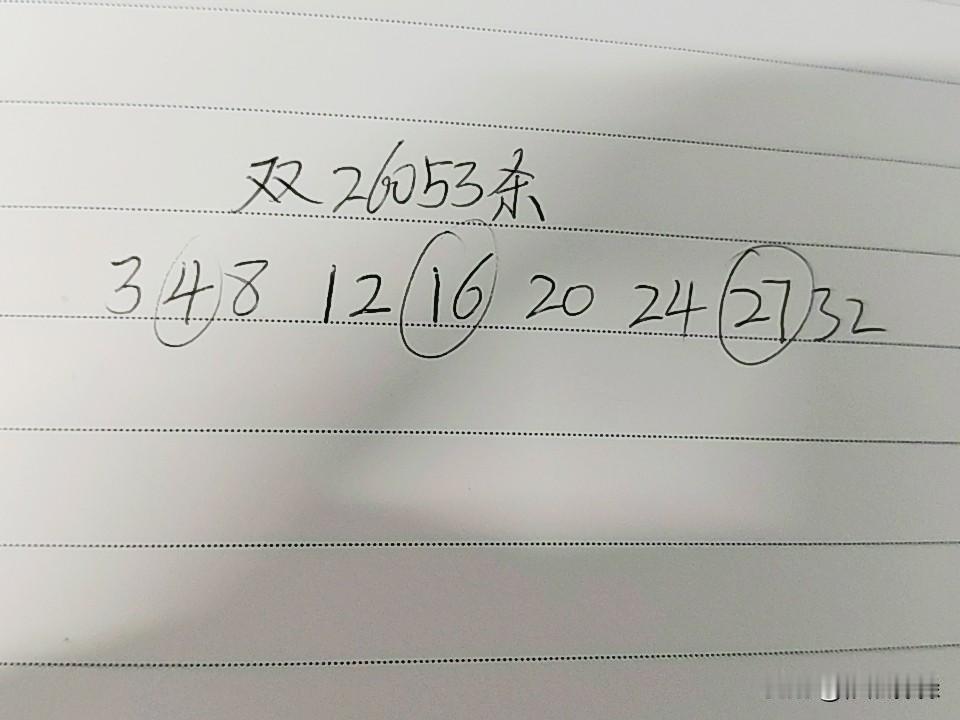 双26053杀
3 4 8 12 16 20 24 27 32